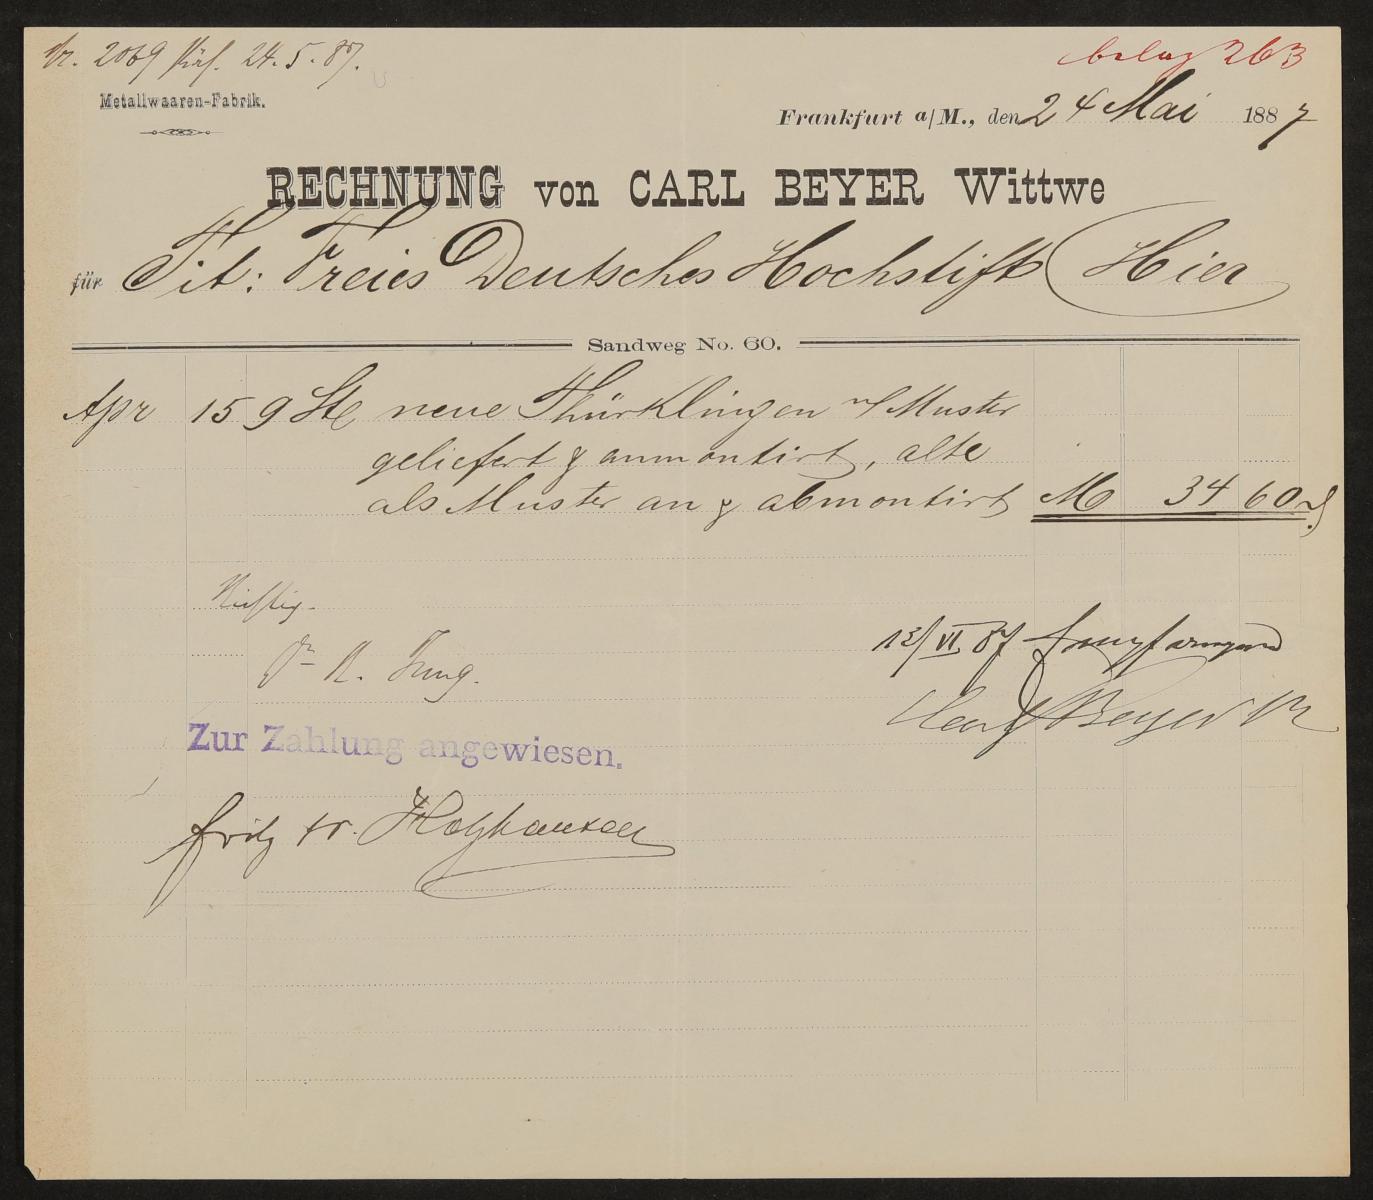 Nr. 2069 präs. 24.5.87.
belag 263
Metallwaaren-Fabrik.
Frankfurt a/M., den 24 Mai 1887
RECHNUNG von CARL BEYER Wittwe
für Tit: Freies Deutsches Hochstift Hier
Sandweg No. 60.
Apr 15 9 Stc neue Thürklingen n/ Muster
geliefert & anmontirt, alte
als Muster an & abmontirt M 34 60
Richtig.
Dr R. Jung.
12/VI 87 Empfangend
Carl Beyer W
Zur Zahlung angewiesen.
Fritz Fr. Holzhausen